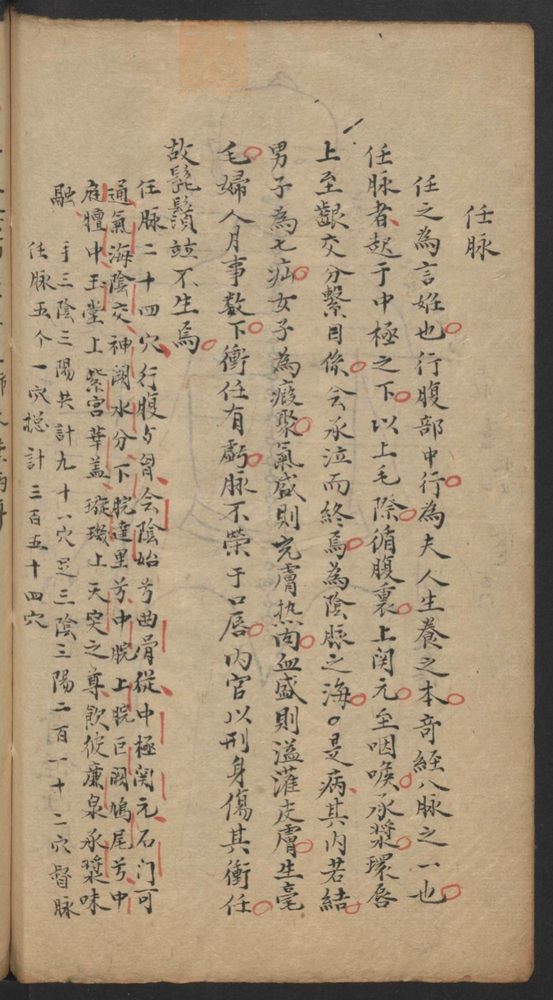 任脉
任之為言妊也行腹部中行為夫人生養之本奇經八脉之一也
任脉者起于中極之下以上毛際循腹裏上関元至咽喉承漿環唇
上至齦交分繫目係会承泣而終焉為陰脈之海○是病其内若結
男子為七疝女子為瘕聚氣盛則充膚热肉血盛則溢灌皮膚生毫
毛婦人月事数下衝任有虧脉不榮于口唇内官以刑身傷其衝任
故髭鬚竝不生焉
任脉二十四穴行腹与胷会陰始兮曲骨従中極関元石门可
通氣海陰交神阙水分下脘建里兮中脘上脘巨闕鳩尾兮中
庭膻中玉堂上紫宮華盖璇璣上天突之尊飲彼廉泉承漿味
融
手三陰三陽共計九十一穴足三陰三陽二百一十二穴督脉
任脉五个一穴捴計三百五十四穴